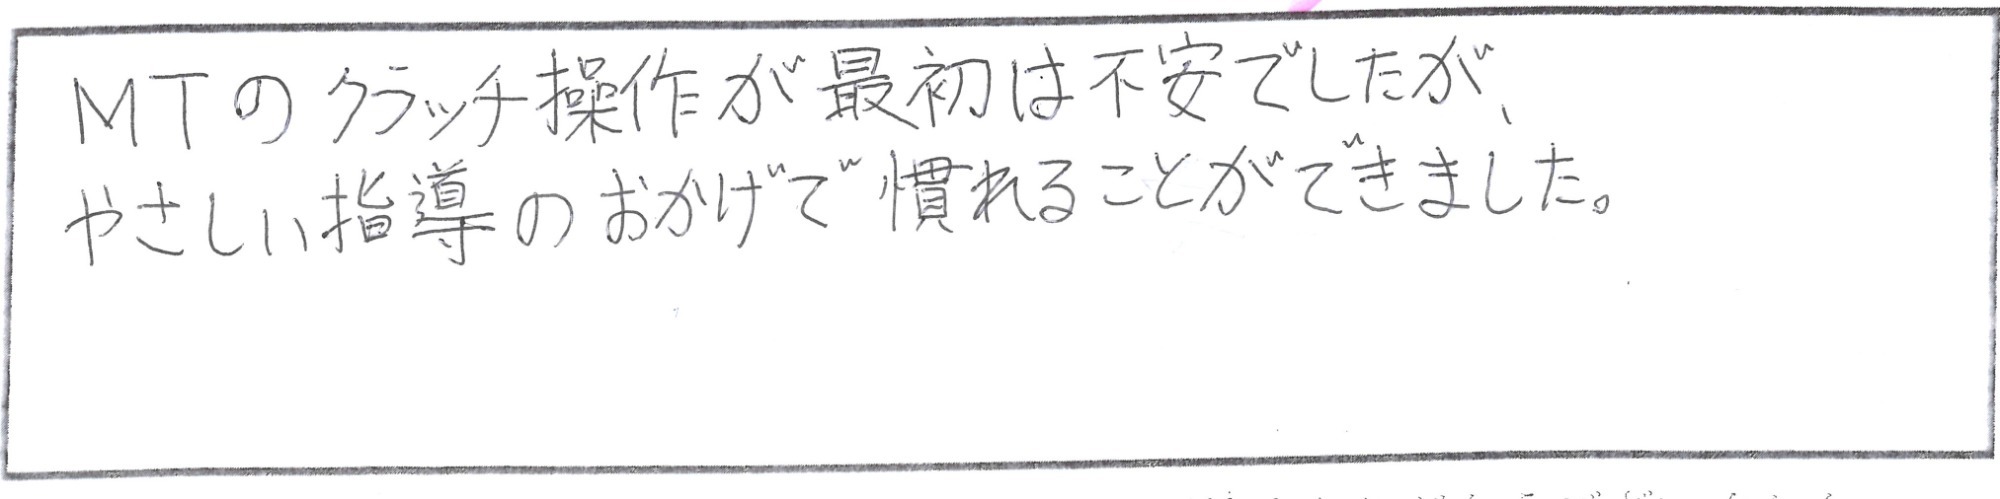 MTのクラッチ操作が最初は不安でしたが、
やさしい指導のおかげで慣れることができました。